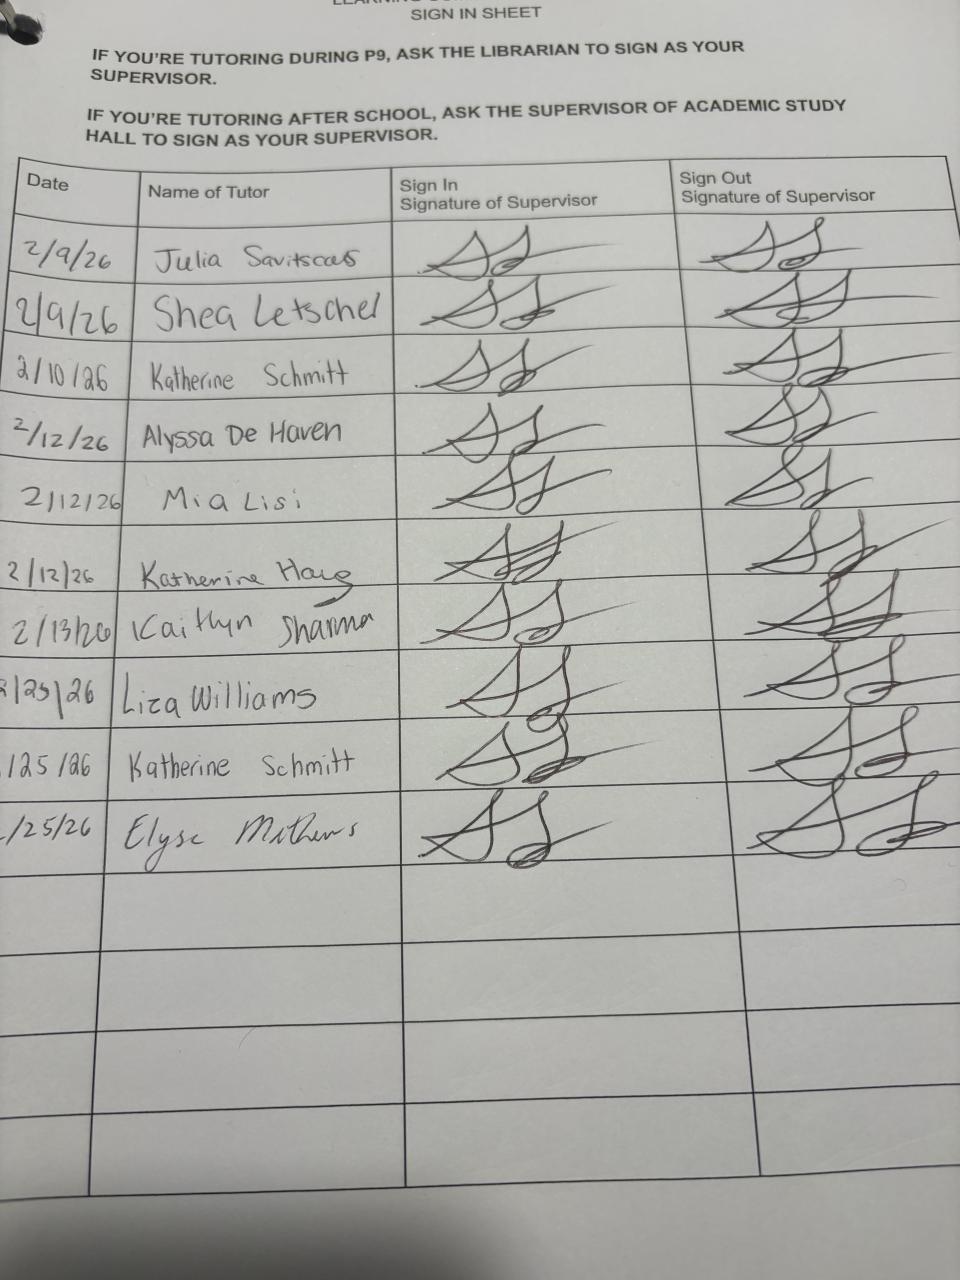 SIGN IN SHEET
IF YOU'RE TUTORING DURING P9, ASK THE LIBRARIAN TO SIGN AS YOUR
SUPERVISOR.
IF YOU'RE TUTORING AFTER SCHOOL, ASK THE SUPERVISOR OF ACADEMIC STUDY
HALL TO SIGN AS YOUR SUPERVISOR.
Date Name of Tutor Sign In Signature of Supervisor Sign Out Signature of Supervisor
2/9/26 Julia
2/9/26 Shea Letschel
2/10/26 Katherine Schmitt
2/12/26 Alyssa De Haven
2/12/26 Mia Lisi
2/12/26 Katherine
2/13/26 Kaitlyn Sharma
/25/26 Liza Williams
/25/26 Katherine Schmitt
/25/26 Elyse